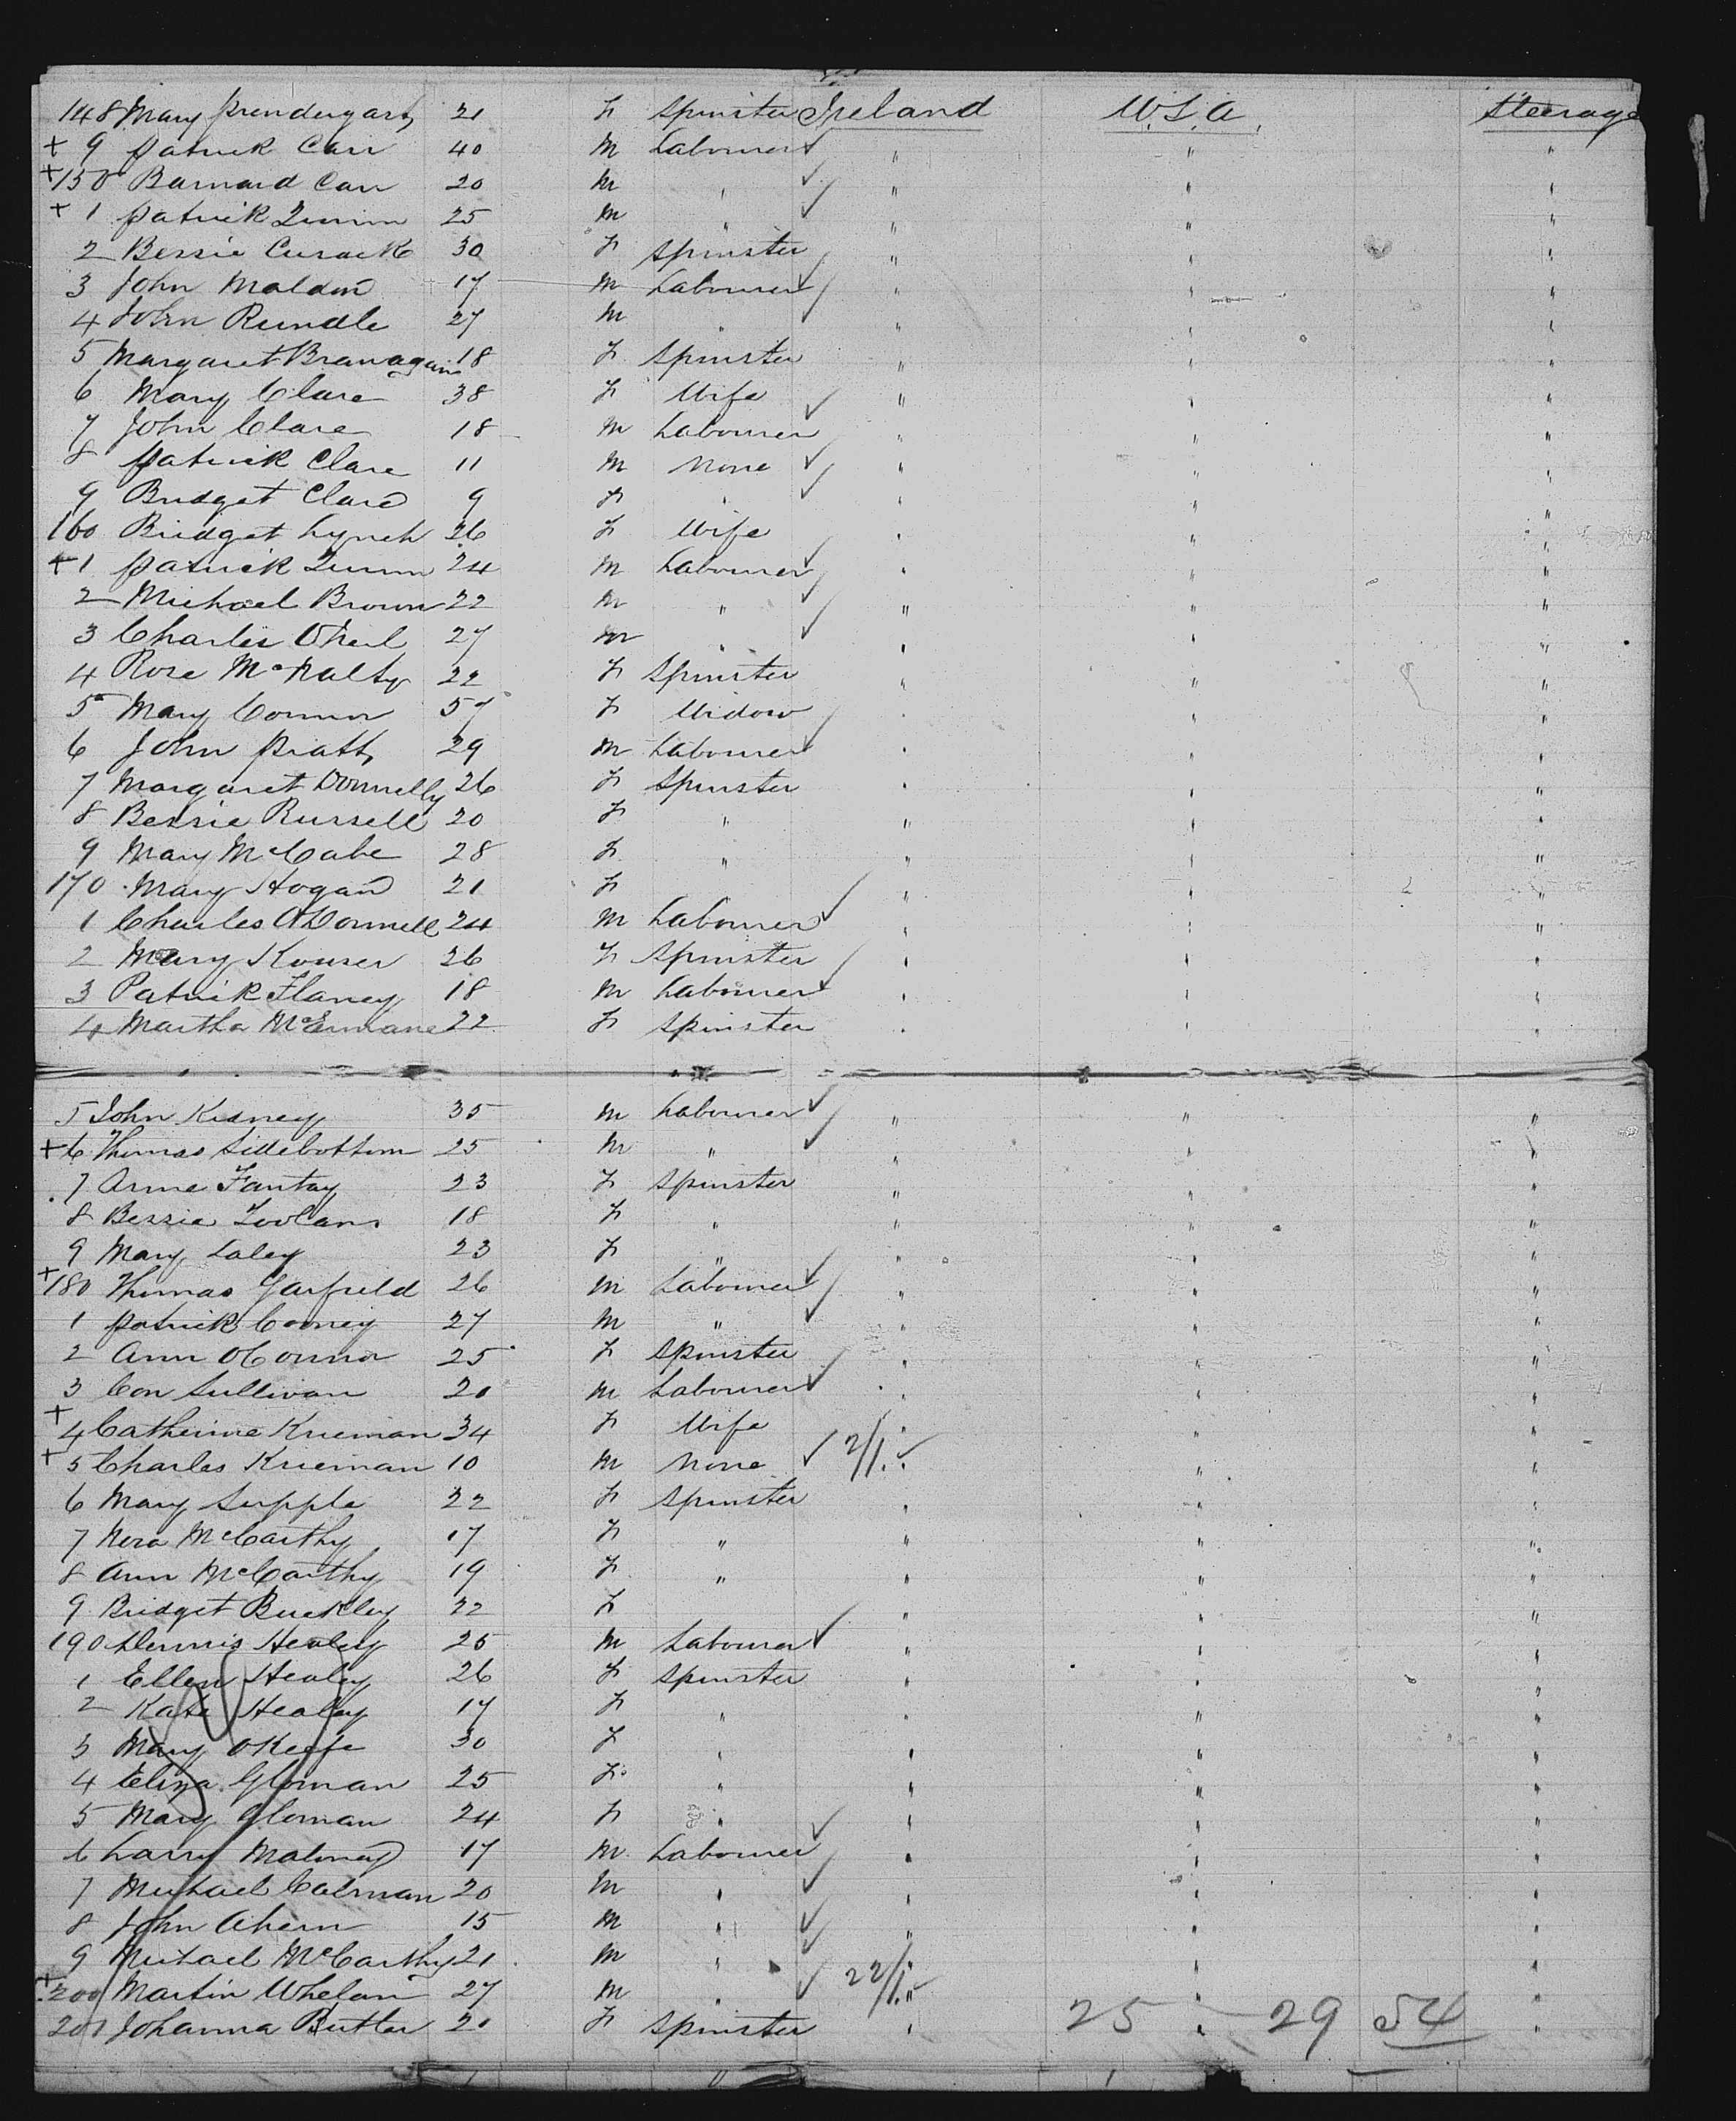 148 Mary Prendergast 21 F Spinster Ireland U.S.A. Steerage
+ 9 Patrick Carr 40 M Labourer ✓ " " "
+ 150 Barnard Carr 20 M " ✓ " " "
+ 1 Patrick Quinn 25 M " ✓ " " "
2 Bessie Cusack 30 F Spinster " " "
3 John Maldon 17 M Labourer ✓ " " "
4 John Rundle 27 M " ✓ " " "
5 Margaret Branagan 18 F Spinster " " "
6 Mary Clare 38 F Wife " " "
7 John Clare 18 M Labourer ✓ " " "
8 Patrick Clare 11 M None ✓ " " "
9 Bridget Clare 9 F " ✓ " " "
160 Bridget Lynch 26 F Wife " " "
+ 1 Patrick Quinn 24 M Labourer ✓ " " "
2 Michael Brown 22 M " ✓ " " "
3 Charles O'Neil 27 M " ✓ " " "
4 Rose McNalty 22 F Spinster " " "
5 Mary Connor 57 F Widow " " "
6 John Pratt 29 M Labourer ✓ " " "
7 Margaret Donnelly 26 F Spinster " " "
8 Bessie Russell 20 F " " " "
9 Mary McCabe 28 F " " " "
170 Mary Hogan 21 F " " "
1 Charles O'Donnell 24 M Labourer ✓ " " "
2 Mary 26 F Spinster " " "
3 Patrick Flaney 18 M Labourer ✓ " " "
4 Martha 22 F Spinster " " "
5 John Kidney 35 M Labourer ✓ " " "
+ 6 Thomas Sidebottom 25 M " ✓ " " "
7 Anne Fantay 23 F Spinster " " "
8 Bessie 18 F " " " "
9 Mary Laley 23 F " " " "
+ 180 Thomas Garfield 26 M Labourer ✓ " " "
1 Patrick Cooney 27 M " ✓ " " "
2 Ann OConnor 25 F Spinster " " "
3 Con Sullivan 20 M Labourer ✓ " " "
+ 4 Catherine Krieman 34 F Wife " " "
+ 5 Charles Krieman 10 M None ✓ 2/1 ✓ " " "
6 Mary Supple 22 F Spinster " " "
7 Nora McCarthy 17 F " " " "
8 Ann McCarthy 19 F " " " "
9 Bridget Buckley 22 F " " "
190 Dennis Healey 25 M Labourer ✓ " " "
1 Ellen Healey 26 F Spinster " " "
2 Kate Healey 17 F " " " "
3 Mary OKeefe 30 F " " " "
4 Eliza Gloman 25 F " " " "
5 Mary Gloman 24 F " " " "
6 Larry Maloney 17 M Labourer ✓ " " "
7 Michael Colman 20 M " ✓ " " "
8 John Ahern 15 M " ✓ " " "
9 Michael McCarthy 21 M " ✓ " " "
+ 200 Martin Whelan 27 M " ✓ 22/1 " " "
201 Johanna Butler 20 F Spinster " " "
25 29 54